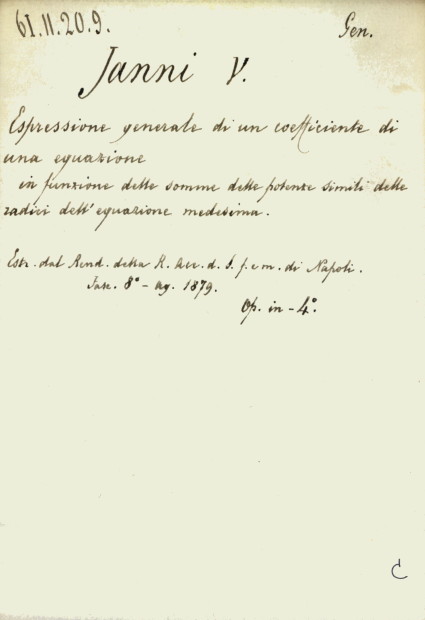 61.11.20.9.
Gen.
Janni V.
Espressione generale di un coefficiente di
una equazione
in funzione delle somme delle potenze simili delle
radici dell'equazione medesima.
Estr. dal Rend. della R. Acc. d. S. f. e m. di Napoli.
Fasc. 8° - Ag. 1879.
Op. in - 4°.
C